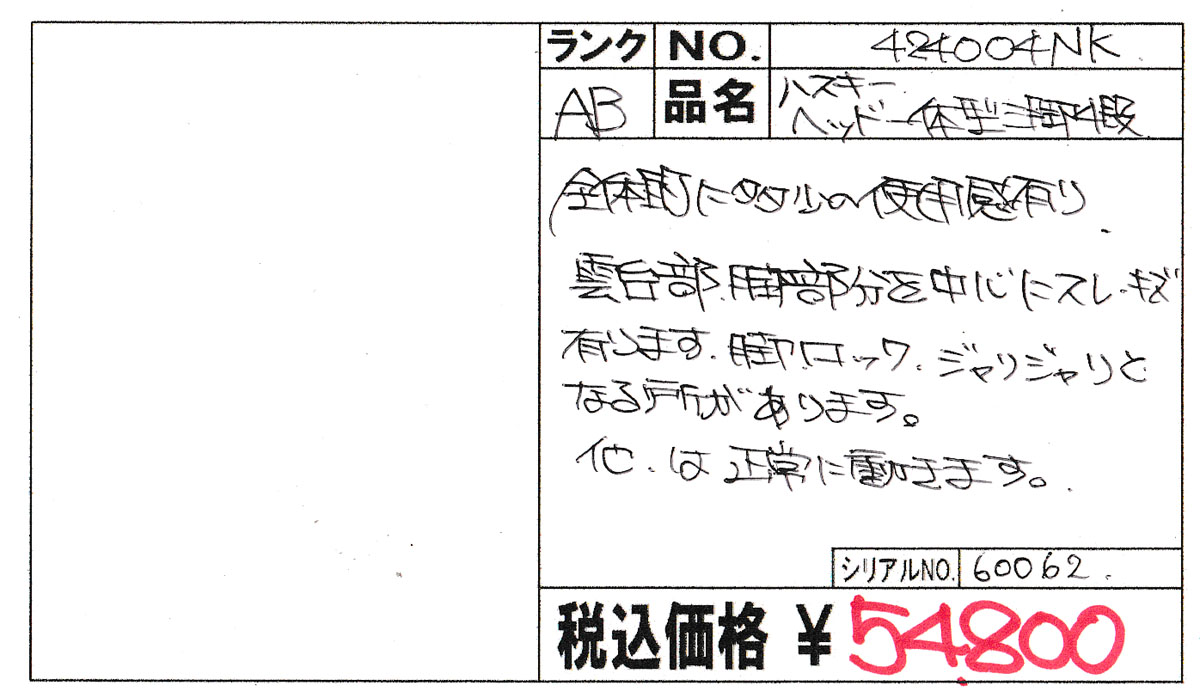 ランク NO. 424004NK
AB 品名 ハスキー
ヘッド一体型三脚4段
全体的に多少の使用感有り.
雲台部.脚部分を中心にスレ・キズ
有ります.脚ロック.ジャリジャリと
なる所があります。
他.は正常に動きます。
シリアルNO. 60062.
税込価格 ¥54,800